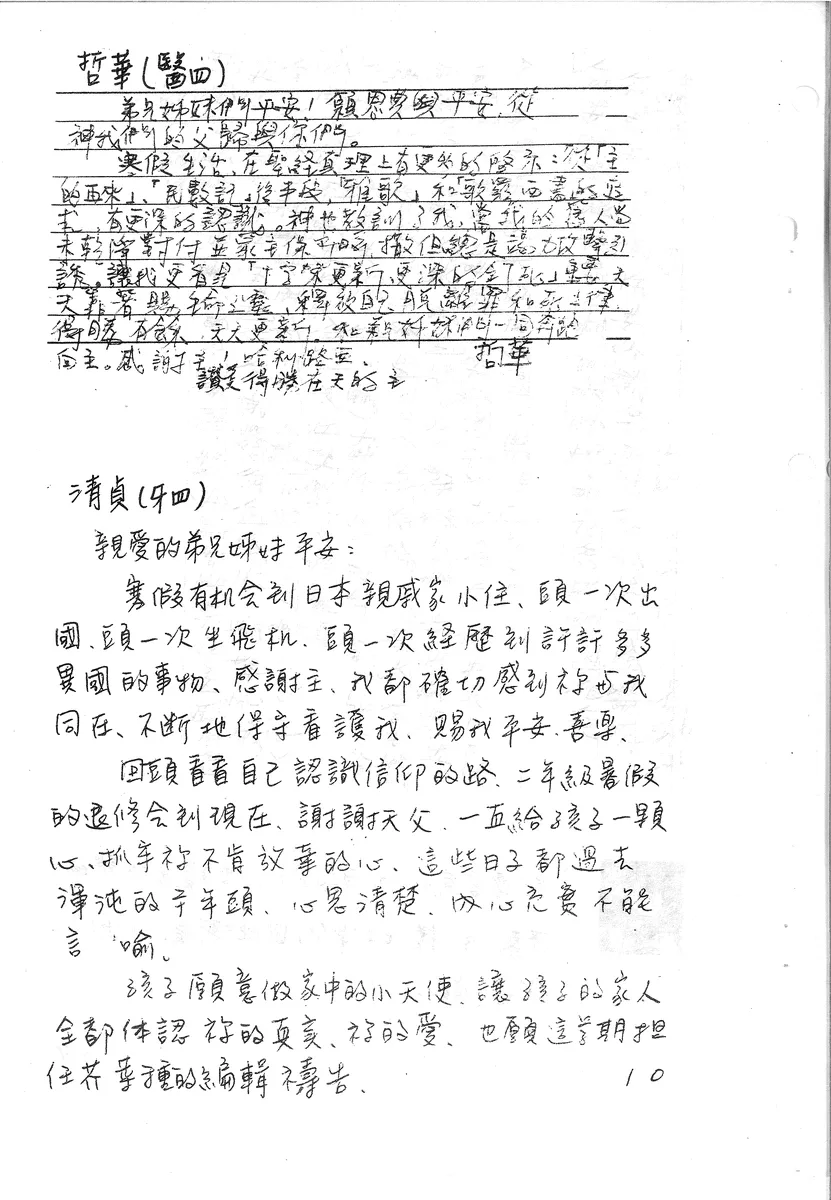 哲華(醫四)
弟兄姊妹們平安！願恩惠與平安，從
神我們的父歸與你們。
寒假生活，在聖經真理上有更多的啓示：從「主
的再來」、「民數記」後半段，「雅歌」和「歌羅西書」的
，有更深的認識。神也教訓了我，當我的舊人尚
未乾淨對付並蒙主保 撒但總是
誘。讓我更看見「十字架更新，更深的 死」 天
天靠著賜生命之靈，釋放自己脫離罪和死之律，
得勝有餘，天天更新。和弟兄姊妹們一同奔跑
向主。感謝主！哈利路亞。
哲華
讚美得勝在天的主
清貞(牙四)
親愛的弟兄姊妹平安：
寒假有机会到日本親戚家小住、頭一次出
國、頭一次坐飛机、頭一次経歷到許許多多
異國的事物、感謝主、我都確切感到祢与我
同在、不斷地保守看護我、賜我平安、喜樂、
回頭看看自己認識信仰的路、二年級暑假
的退修会到現在、謝謝天父、一直給孩子一顆
心、抓牢祢不肯放棄的心、這些日子都過去
渾沌的 年頭、心思清楚、內心充實不能
言喻。
孩子願意做家中的小天使、讓孩子的家人
全都体認祢的真实、祢的愛、也願這學期担
任芥菜種的編輯禱告、
10